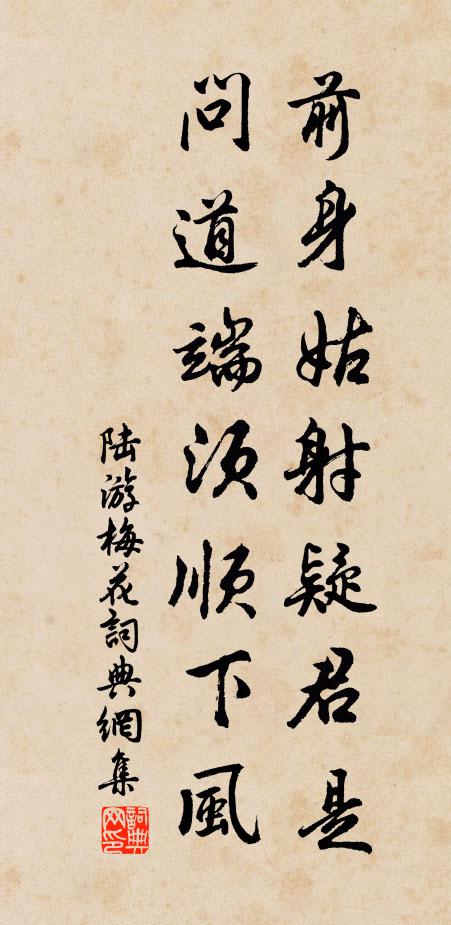 前身姑射疑君是
問道端須順下風
陸游梅花詞典網集
詞典网印